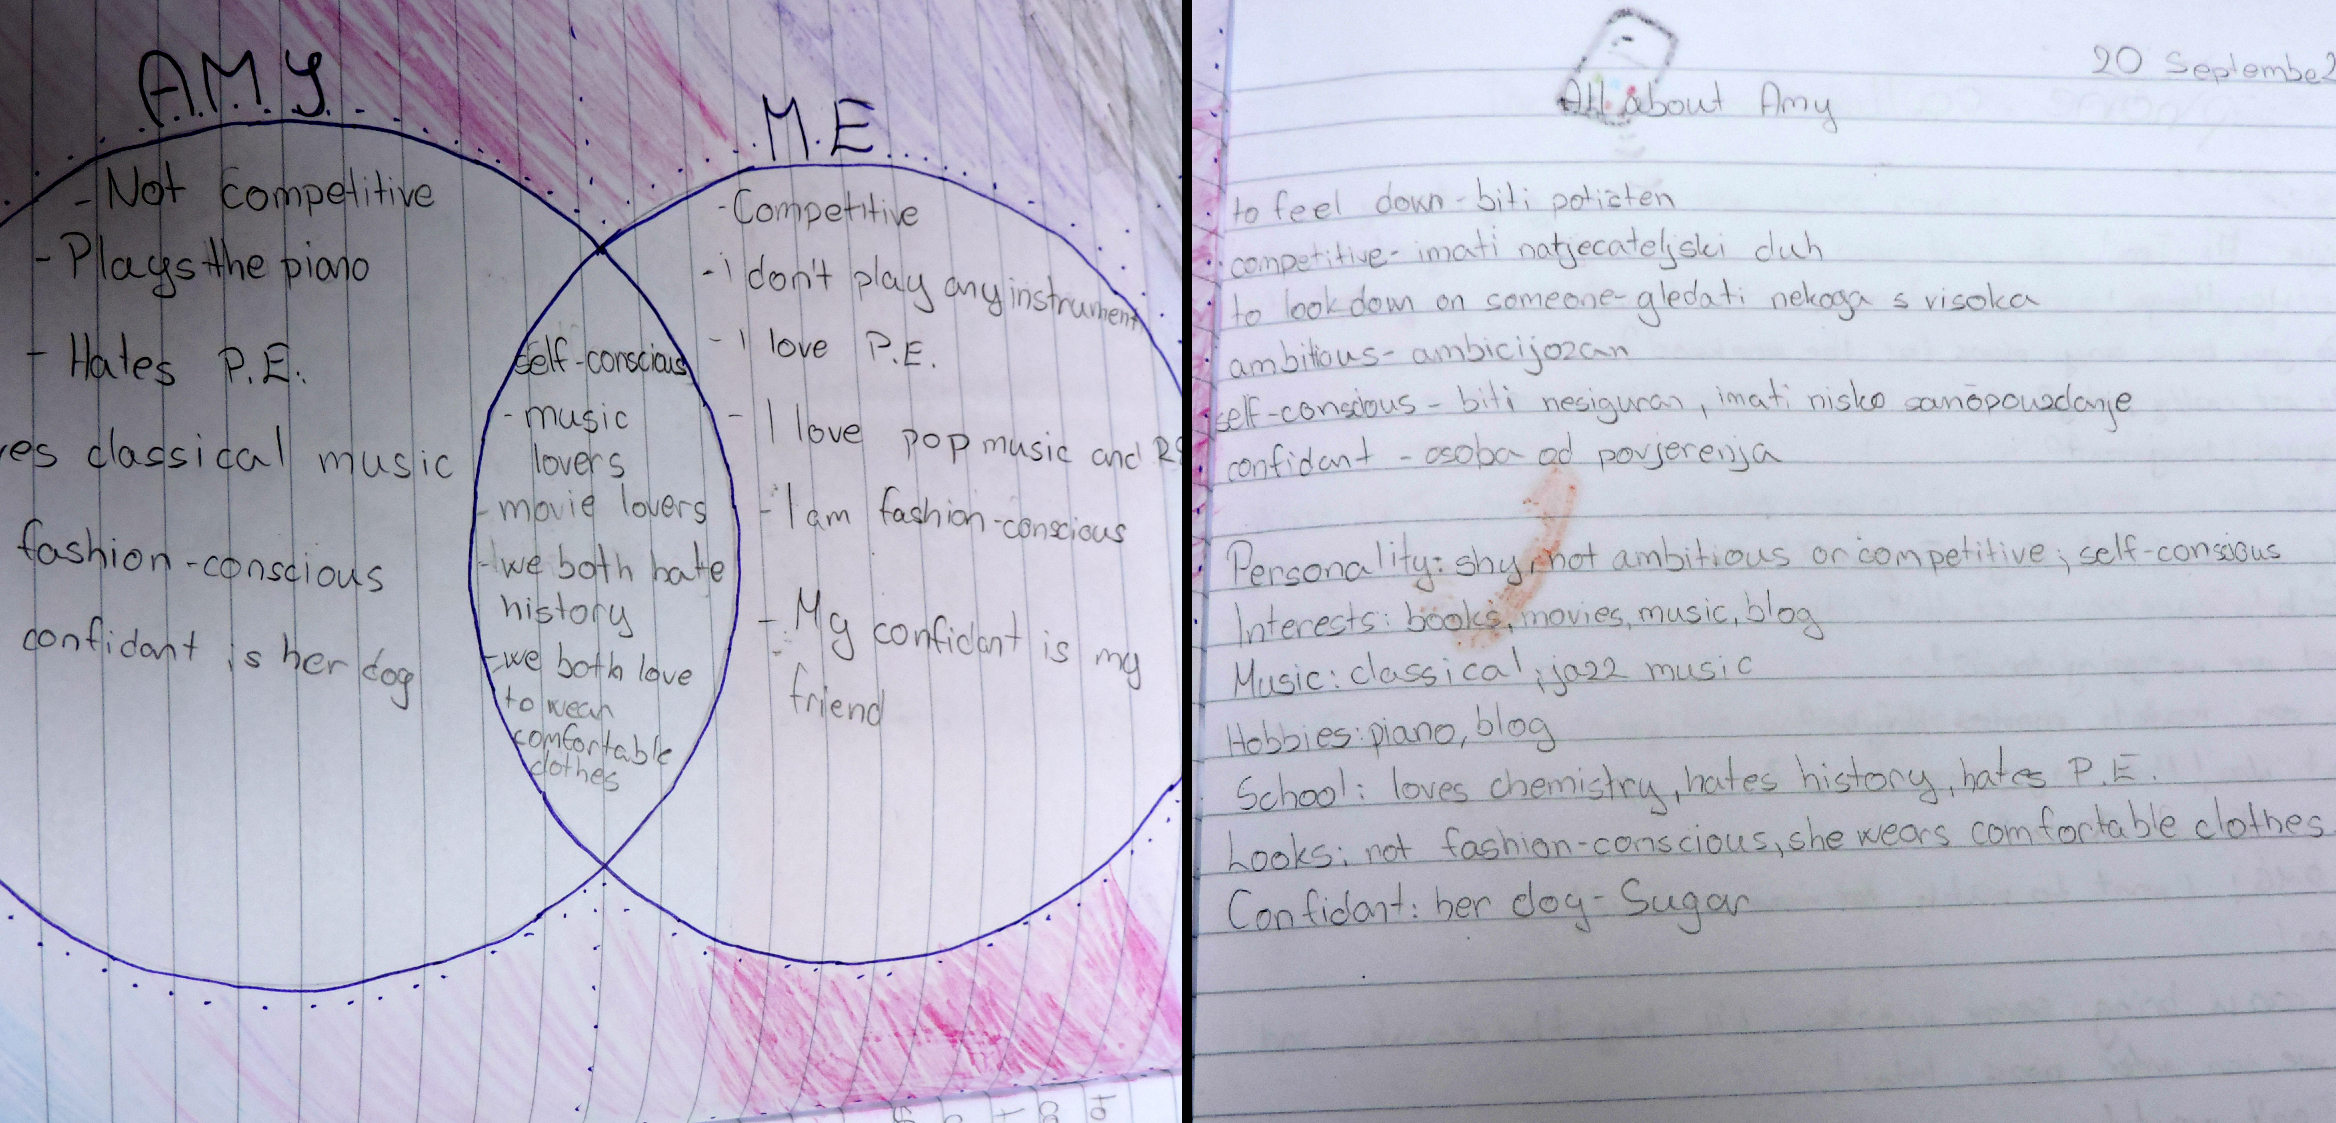 A.M.Y.
- Not competitive
- Plays the piano
- Hates P.E.
es classical music
fashion-conscious
confidant is her dog
self-conscious
- music
lovers
- movie lovers
- we both hate
history
- we both love
to wear
comfortable
clothes
M.E.
- Competitive
- i don't play any instrument
- I love P.E.
- I love pop music and R
- I am fashion-conscious
- My confidant is my
friend
20 September
All about Amy
to feel down - biti potišten
competitive - imati natjecateljski duh
to look down on someone - gledati nekoga s visoka
ambitious - ambicijozan
self-conscious - biti nesiguran, imati nisko samopouzdanje
confidant - osoba od povjerenja
Personality: shy, not ambitious or competitive; self-conscious
Interests: books, movies, music, blog
Music: classical, jazz music
Hobbies: piano, blog
School: loves chemistry, hates history, hates P.E.
Looks: not fashion-conscious, she wears comfortable clothes
Confidant: her dog - Sugar